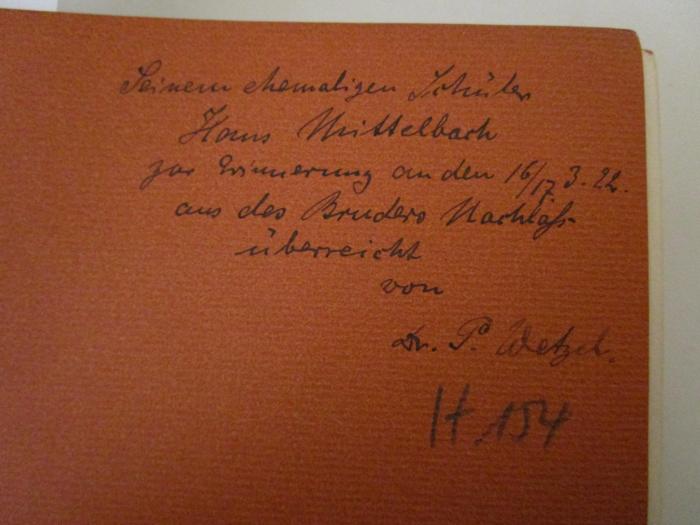 Seinem ehemaligen Schüler
Hans Mittelbach
zur Erinnerung an den 16/17. 3. 22.
aus des Bruders Nachlaß
überreicht
von
Dr. P. Wetzel.
H 154